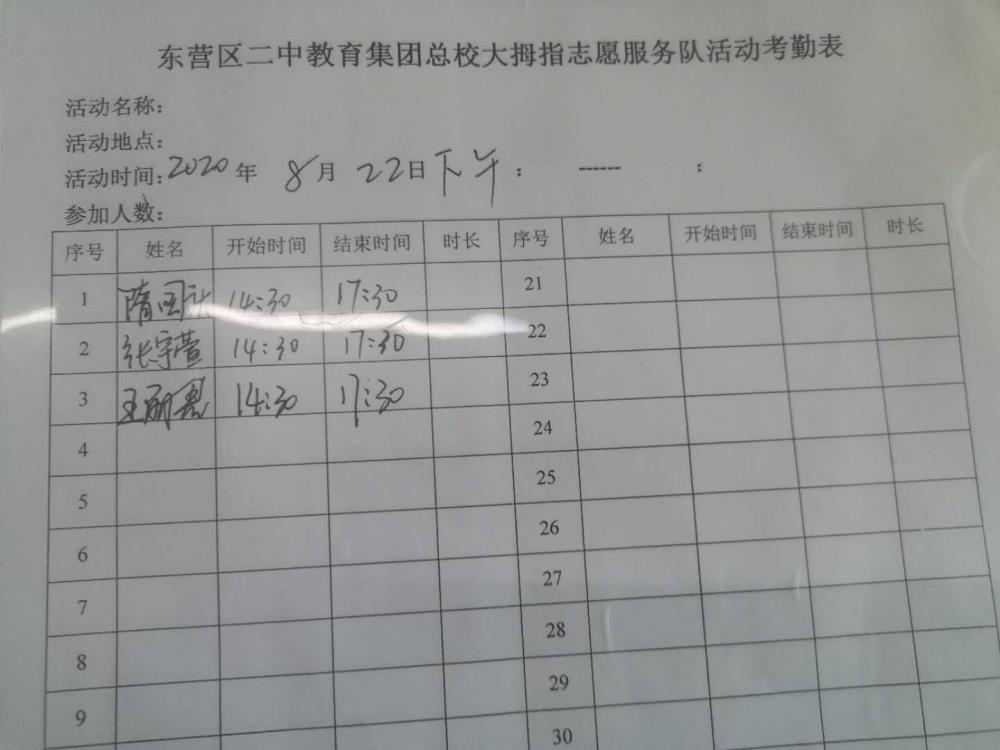 东营区二中教育集团总校大拇指志愿服务队活动考勤表
活动名称：
活动地点：
活动时间：2020年 8月 22日下午： ------ ：
参加人数：
序号 姓名 开始时间 结束时间 时长 序号 姓名 开始时间 结束时间 时长
1 隋国 14:30 17:30 21
2 张宇萱 14:30 17:30 22
3 王丽 14:30 17:30 23
4 24
5 25
6 26
7 27
8 28
9 29
30